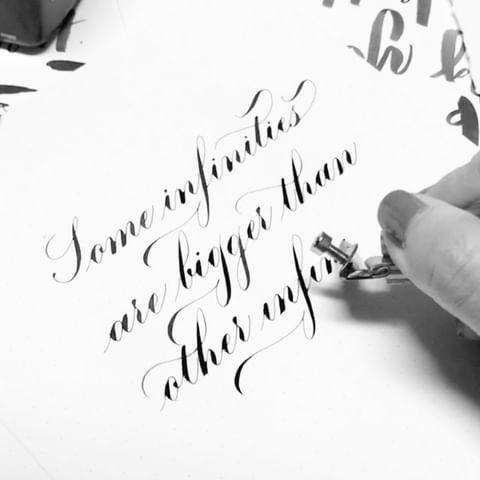 Some infinities
are bigger than
other infin